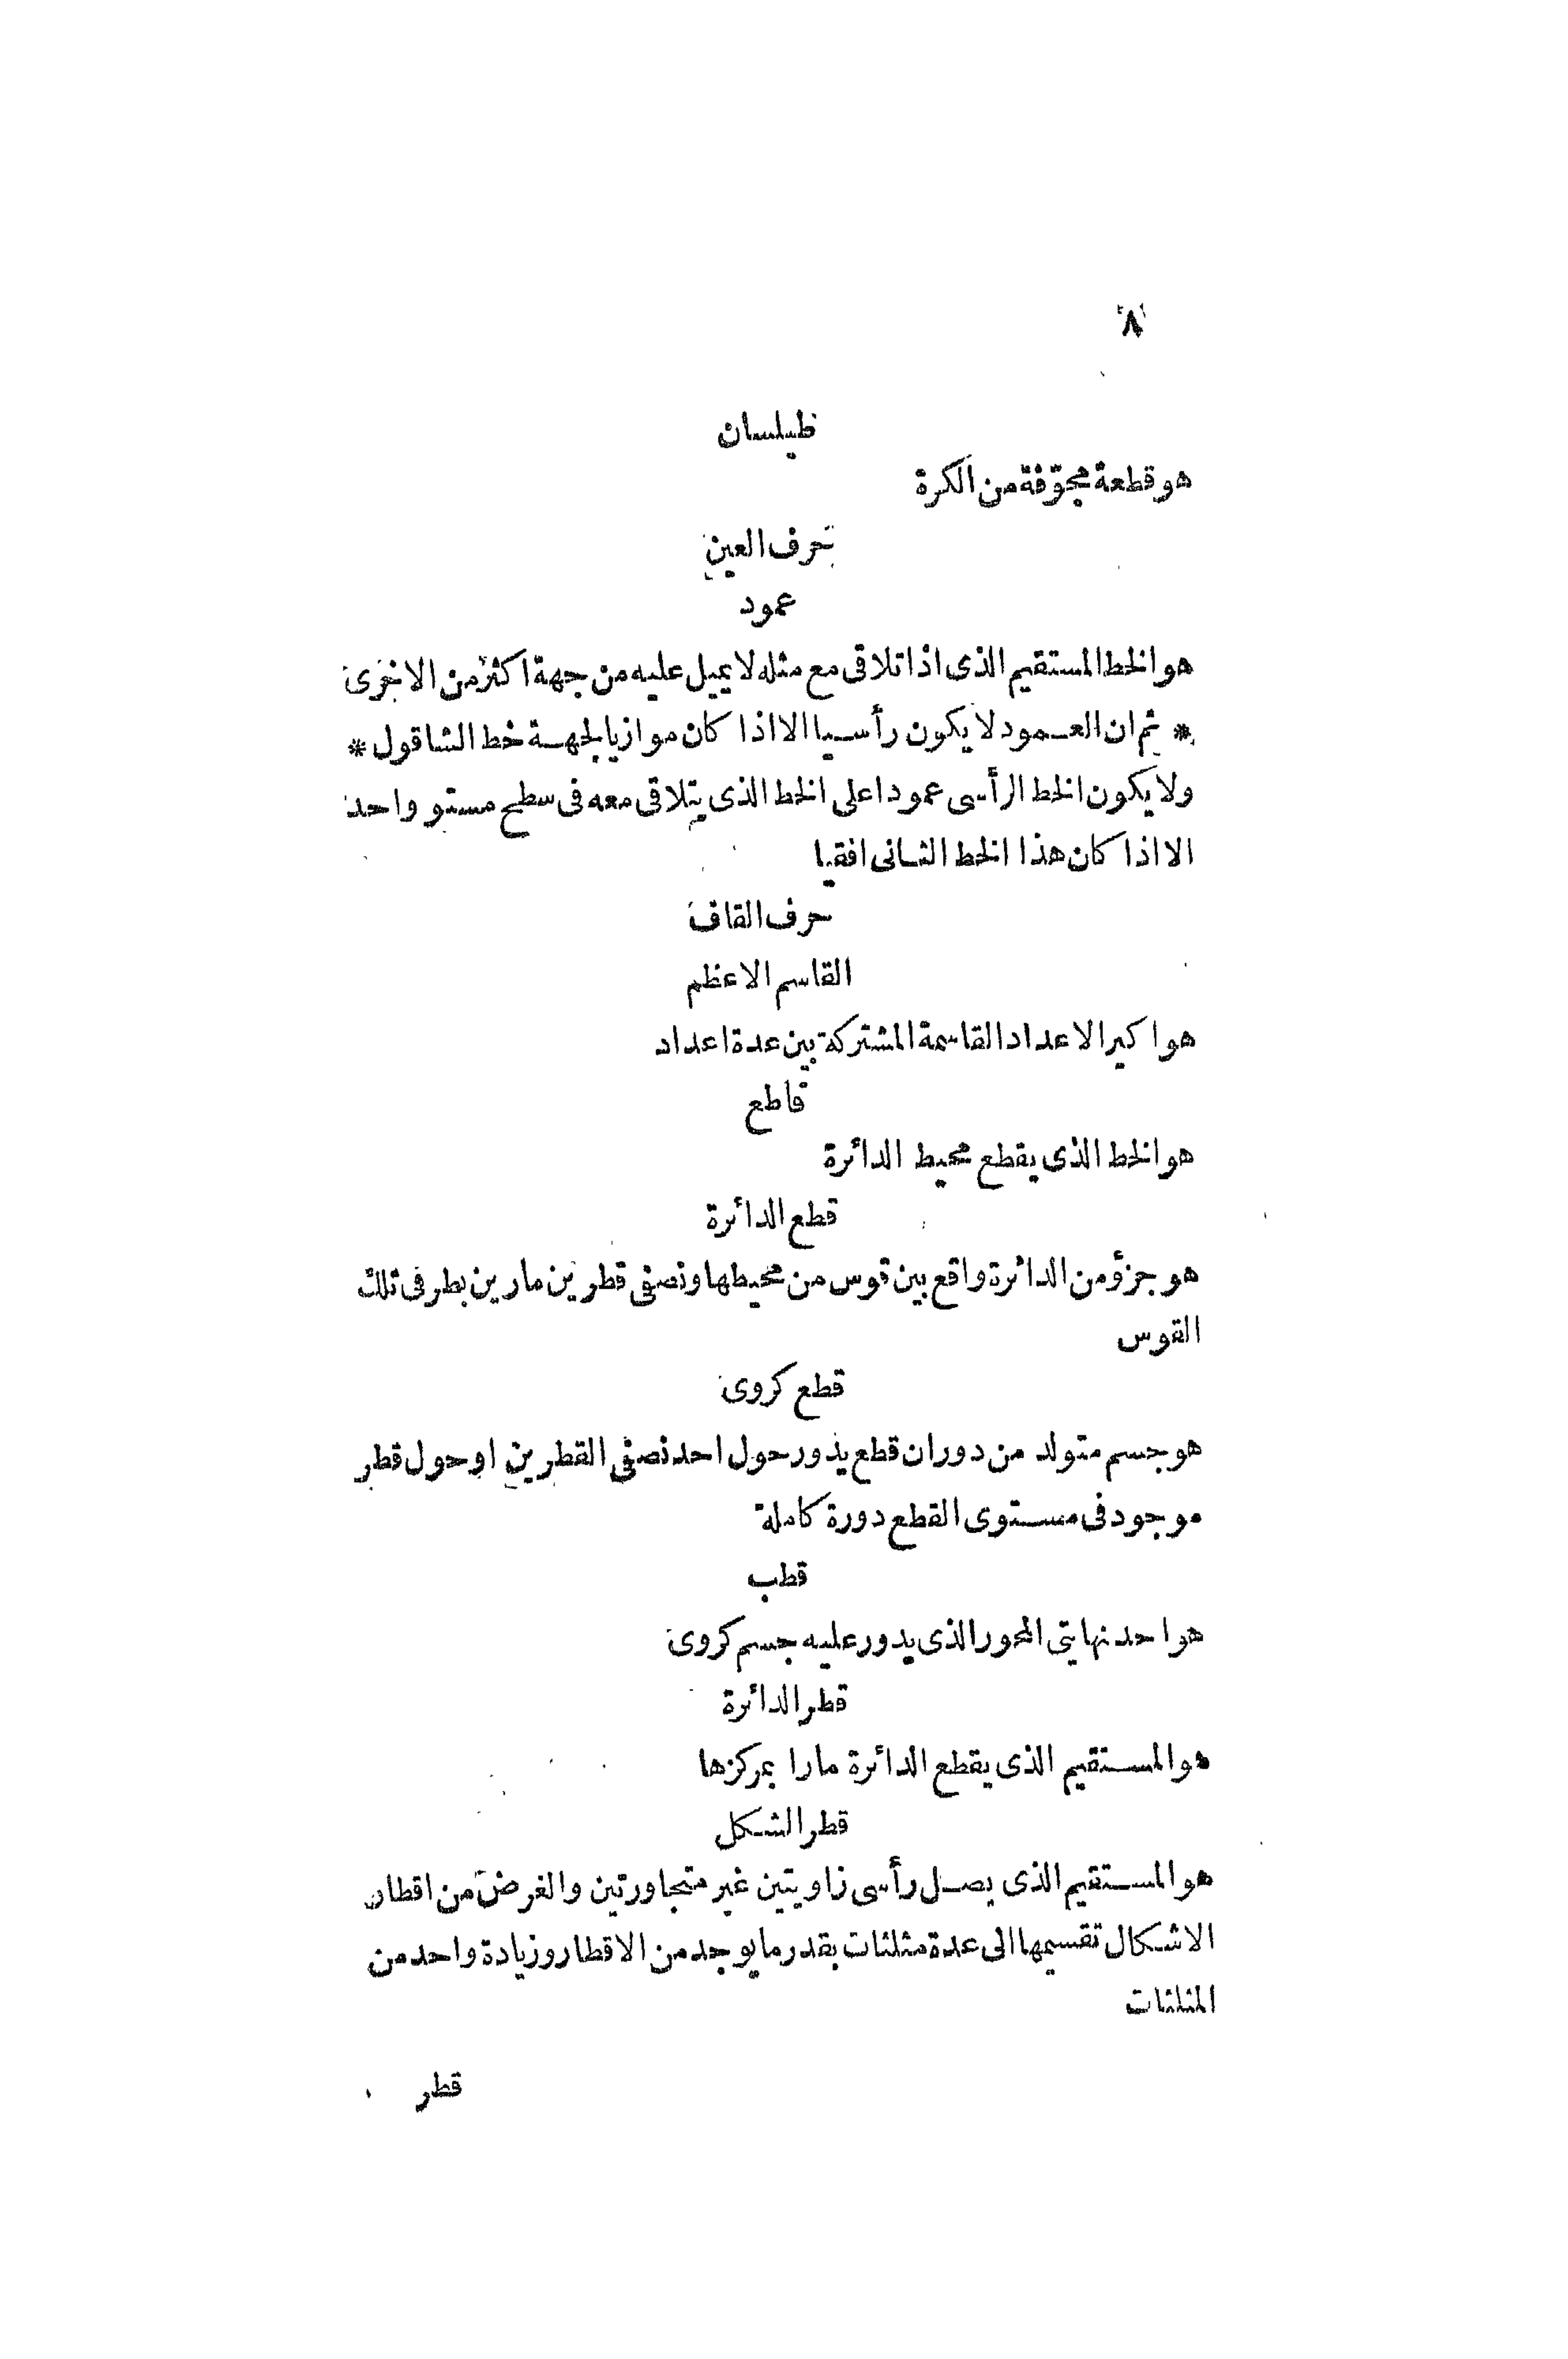 ٨
طيلسان
هو قطعة مجوّفة من الكرة
حرف العين
عمود
هو الخط المستقيم الذى اذا تلاقى مع مثله لا يميل عليه من جهة اكثر من الاخرى
* ثم ان العمود لا يكون رأسيا الا اذا كان موازيا لجهة خط الشاقول *
ولا يكون الخط الرأسى عمودا على الخط الذى يتلاقى معه فى سطح مستو واحد
الا اذا كان هذا الخط الثانى افقيا
حرف القاف
القاسم الاعظم
هو اكبر الاعداد القاسمة المشتركة بين عدة اعداد
قاطع
هو الخط الذى يقطع محيط الدائرة
قطع الدائرة
هو جزؤ من الدائرة واقع بين قوس من محيطها ونصفى قطرين مارين بطرفى تلك
القوس
قطع كروى
هو جسم متولد من دوران قطع يدور حول احد نصفى القطرين او حول قطر
موجود فى مستوى القطع دورة كاملة
قطب
هو احد نهايتى المحور الذى يدور عليه جسم كروى
قطر الدائرة
هو المستقيم الذى يقطع الدائرة مارا بمركزها
قطر الشكل
هو المستقيم الذى يصل رأسى زاويتين غير متجاورتين والغرض من اقطار
الاشكال تقسيمها الى عدة مثلثات بقدر ما يوجد من الاقطار وزيادة واحد من
المثلثات
قطر